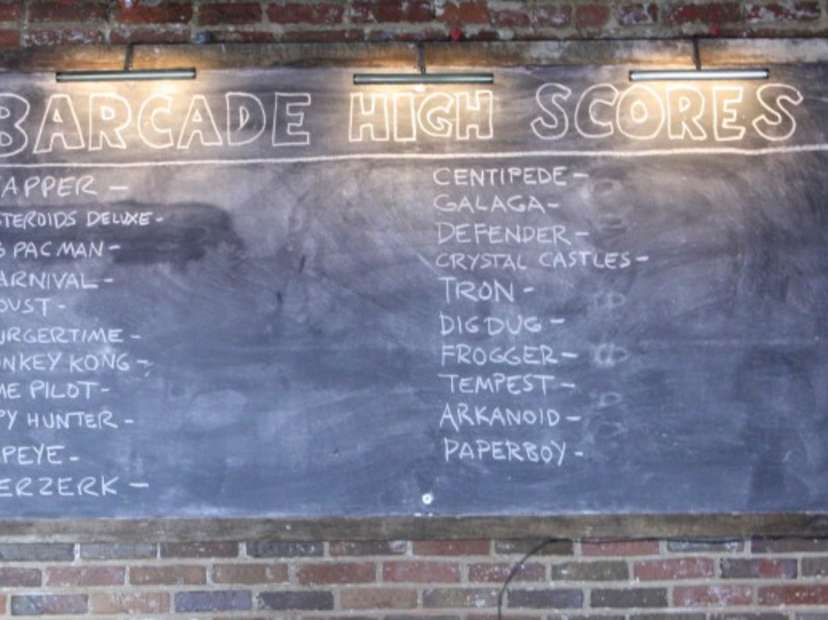 BARCADE HIGH SCORES
APPER -
STEROIDS DELUXE-
PAC MAN -
ARNIVAL -
OUST -
URGERTIME -
NKEY KONG -
ME PILOT -
PY HUNTER -
PEYE -
ERZERK -
CENTIPEDE -
GALAGA -
DEFENDER -
CRYSTAL CASTLES -
TRON -
DIG DUG -
FROGGER -
TEMPEST -
ARKANOID -
PAPERBOY -